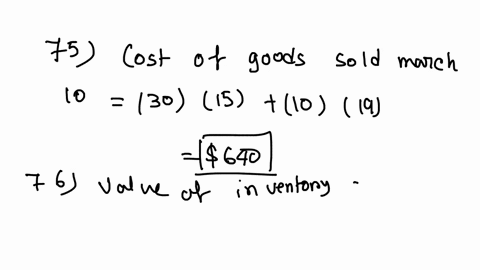 75) Cost of goods sold march
10 = (30) (15) + (10) (19)
= $640
76) value of inventory -